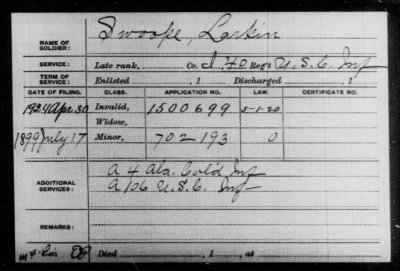 NAME OF SOLDIER: Swoope, Larkin
SERVICE: Late rank, Co. I, 40 Reg't U.S.C. Inf
TERM OF SERVICE: Enlisted , 1 Discharged , 1
DATE OF FILING. CLASS. APPLICATION NO. LAW. CERTIFICATE NO.
1924 Apr. 30 Invalid, 1500699 5-1-20
Widow,
1899 July 17 Minor, 702193 0
ADDITIONAL SERVICES: A 4 Ala. Col'd Inf
A 106 U.S.C. Inf
REMARKS:
Died , 1 , at